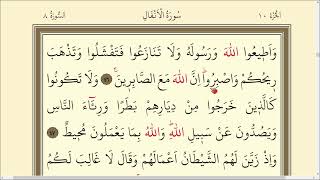 الجزء ١٠ سورة الأنفال السورة ٨
وَاَط۪يعُوا اللّٰهَ وَرَسُولَهُ وَلَا تَنَازَعُوا فَتَفْشَلُوا وَتَذْهَبَ
ر۪يحُكُمْ وَاصْبِرُواۜ اِنَّ اللّٰهَ مَعَ الصَّابِر۪ينَۚ ﴿٤٦﴾ وَلَا تَكُونُوا
كَالَّذ۪ينَ خَرَجُوا مِنْ دِيَارِهِمْ بَطَرًا وَرِئَٓاءَ النَّاسِ
وَيَصُدُّونَ عَنْ سَب۪يلِ اللّٰهِۜ وَاللّٰهُ بِمَا يَعْمَلُونَ مُح۪يطٌ ﴿٤٧﴾
وَاِذْ زَيَّنَ لَهُمُ الشَّيْطَانُ اَعْمَالَهُمْ وَقَالَ لَا غَالِبَ لَكُمُ